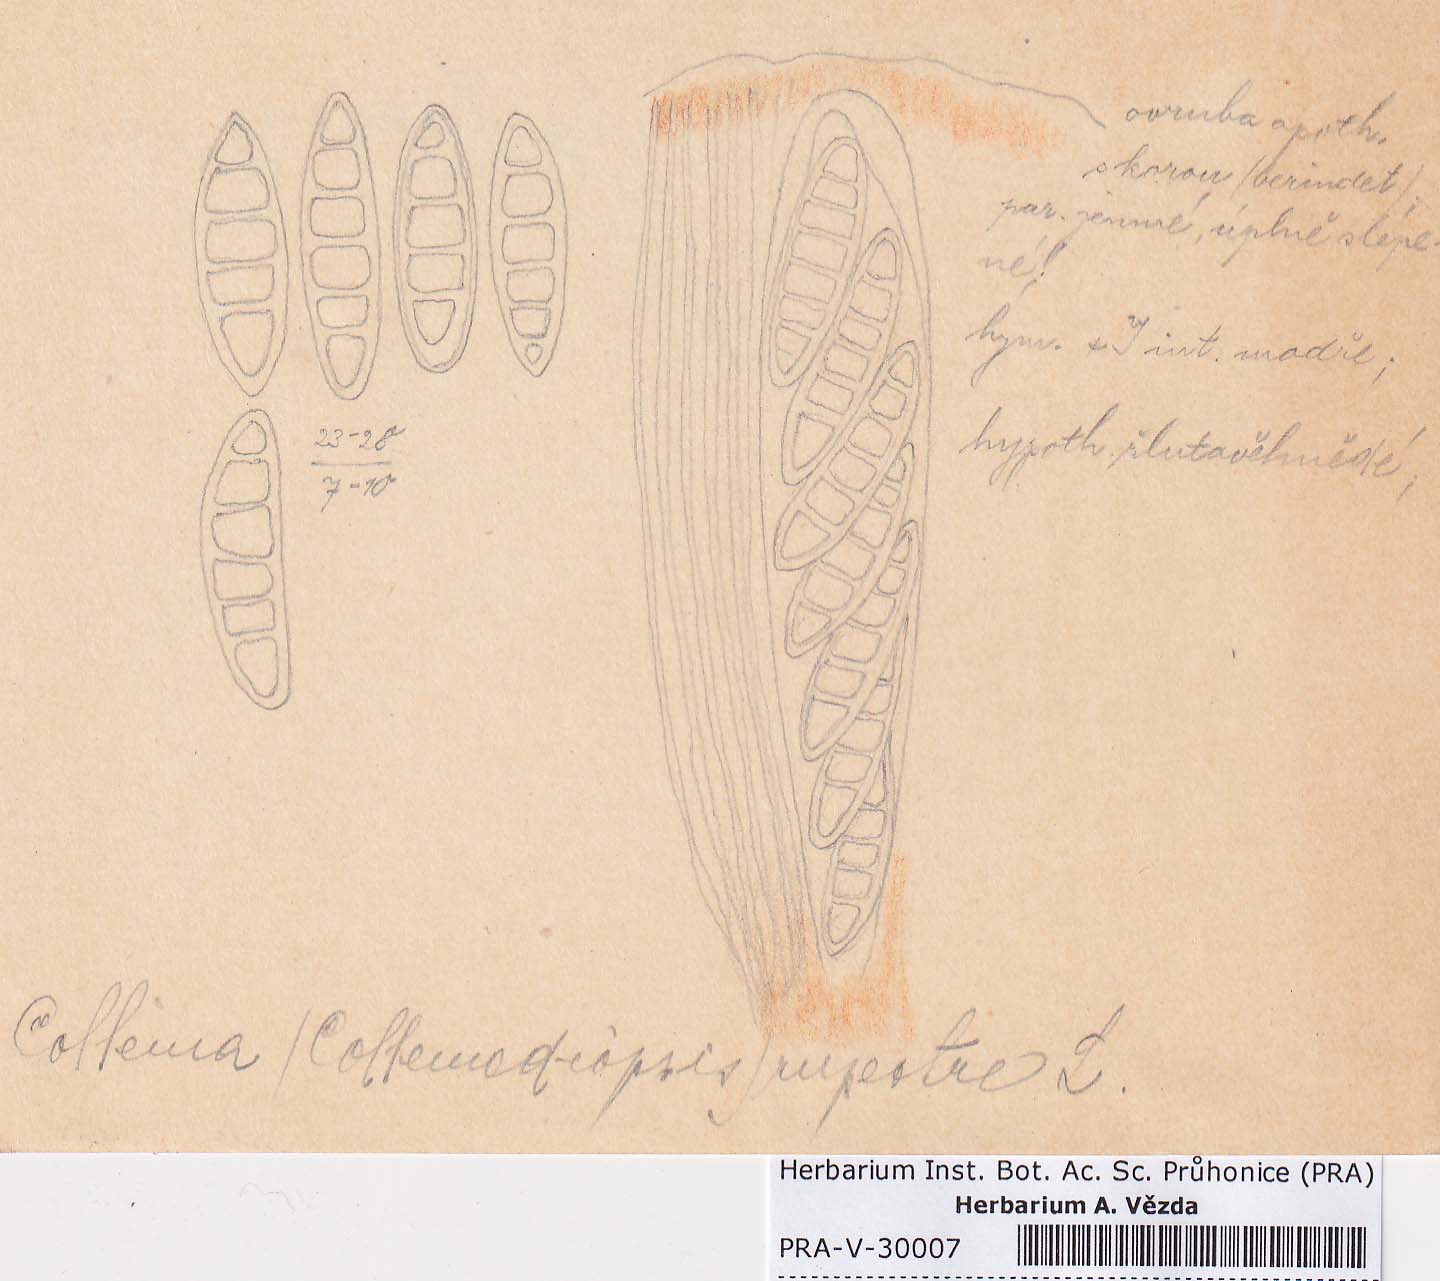 ovruba apoth.
s korou (berindet);
par. jemné, úplně slepe-
né!
hym. + J int. modře;
hypoth. žlutavěhnědé;
23-28
7-10
Collema (Collemodiopsis) rupestre L.
Herbarium Inst. Bot. Ac. Sc. Průhonice (PRA)
Herbarium A. Vězda
PRA-V-30007